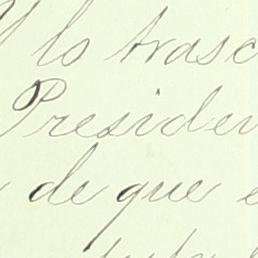 Y lo trasc
Presiden
de que e